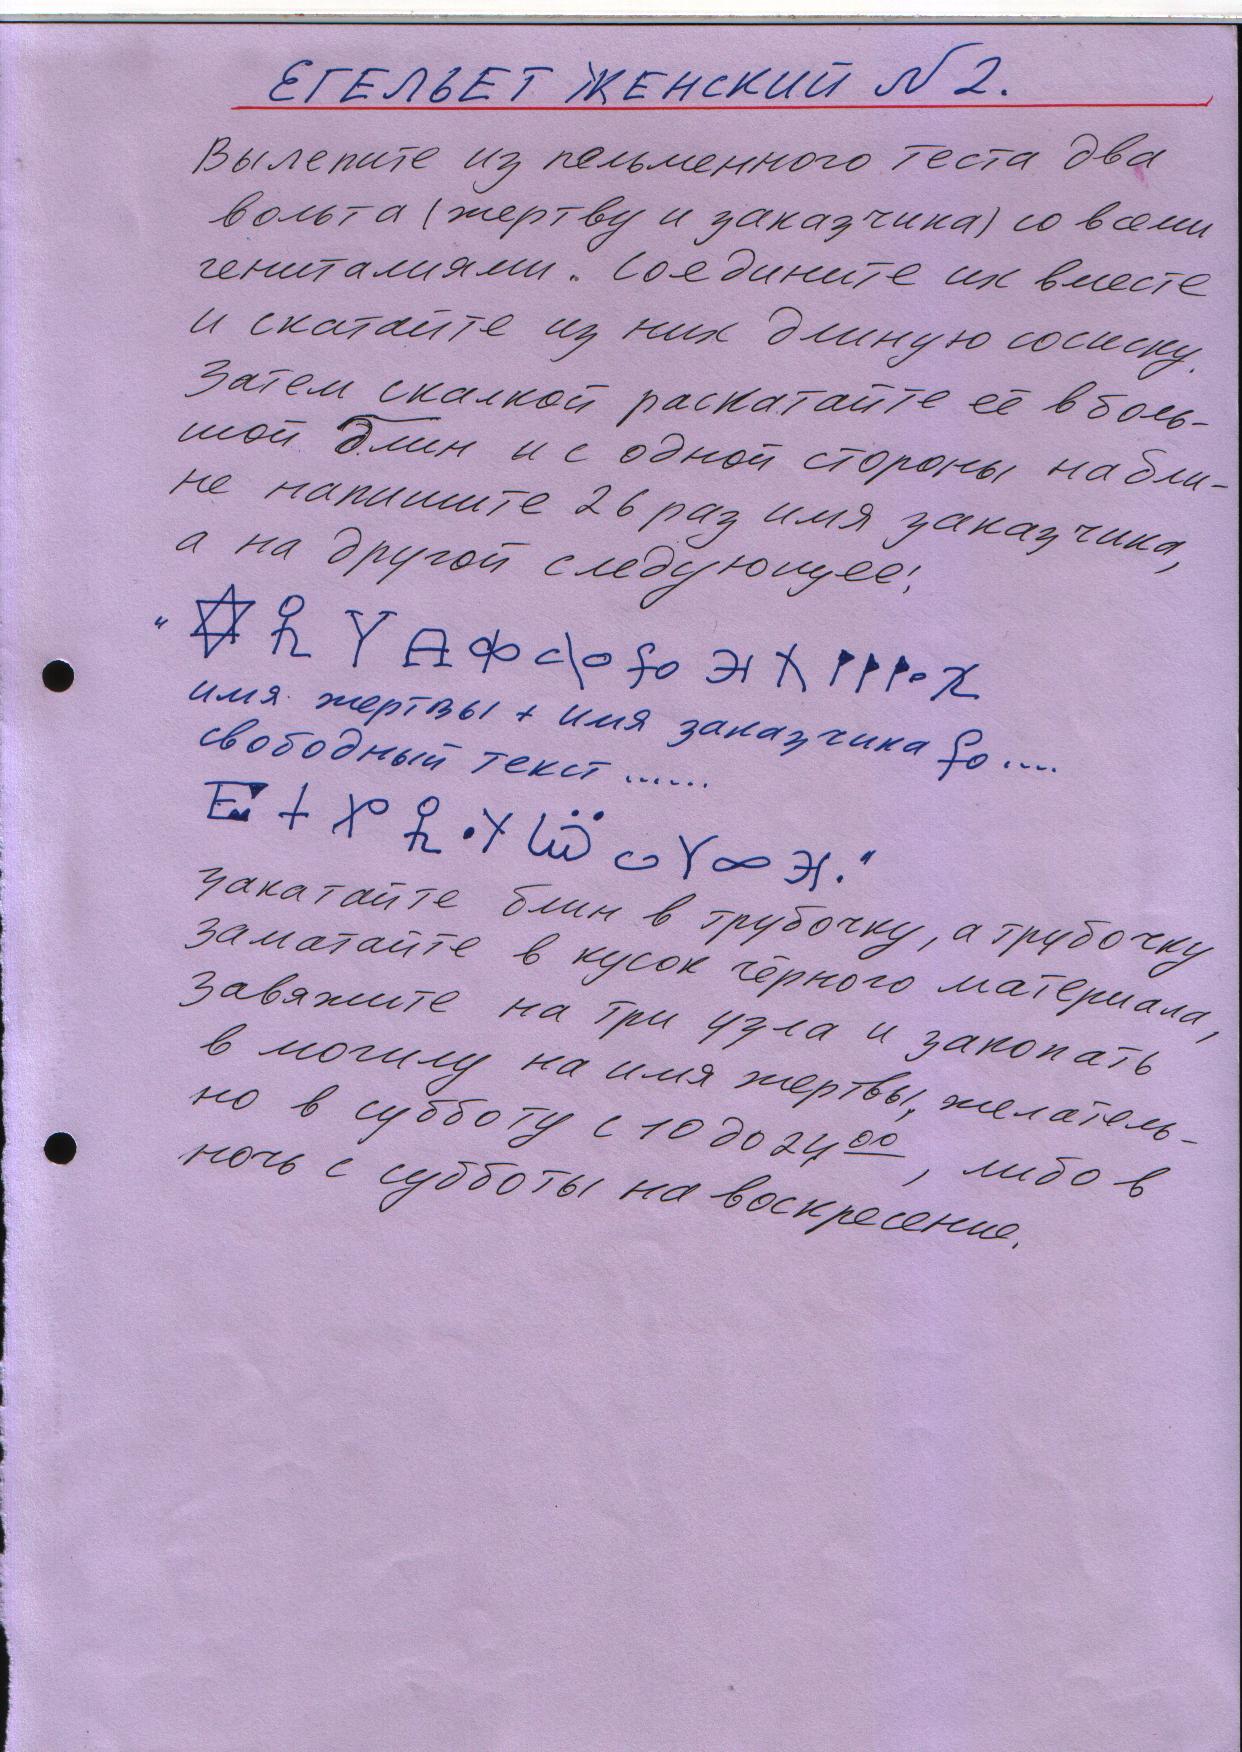 ЕГЕЛЬЕТ ЖЕНСКИЙ N 2.
Вылепите из пельменного теста два
вольта (жертву и заказчика) со всеми
гениталиями. Соедините их вместе
и скатайте из них длиную сосиску.
Затем скалкой раскатайте её в боль-
шой блин и с одной стороны на бли-
не напишите 26 раз имя заказчика,
а на другой следующее:
имя жертвы + имя заказчика ....
свободный текст ......
Закатайте блин в трубочку, а трубочку
заматайте в кусок чёрного материала,
завяжите на три узла и закопать
в могилу на имя жертвы, желатель-
но в субботу с 10 до 24 00, либо в
ночь с субботы на воскресение.